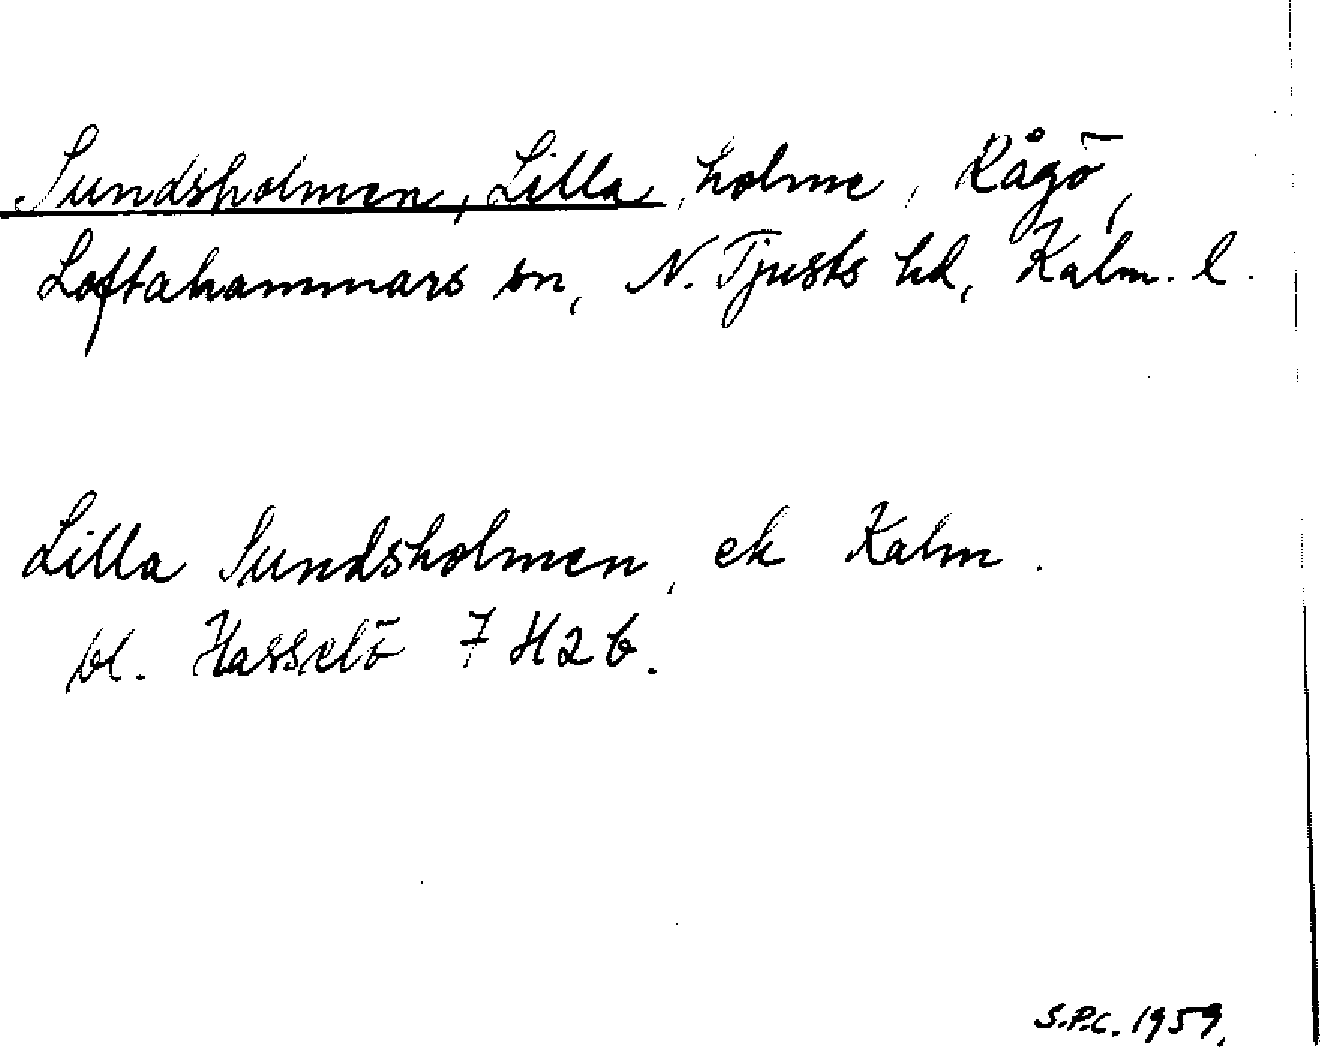 Sundsholmen, Lilla, holme, Rågö,
Loftahammars sn, N. Tjusts hd, Kalm. l.
Lilla Sundsholmen, ek Kalm.
bl. Hasselö 7 H 2 b.
S.P.C. 1959.